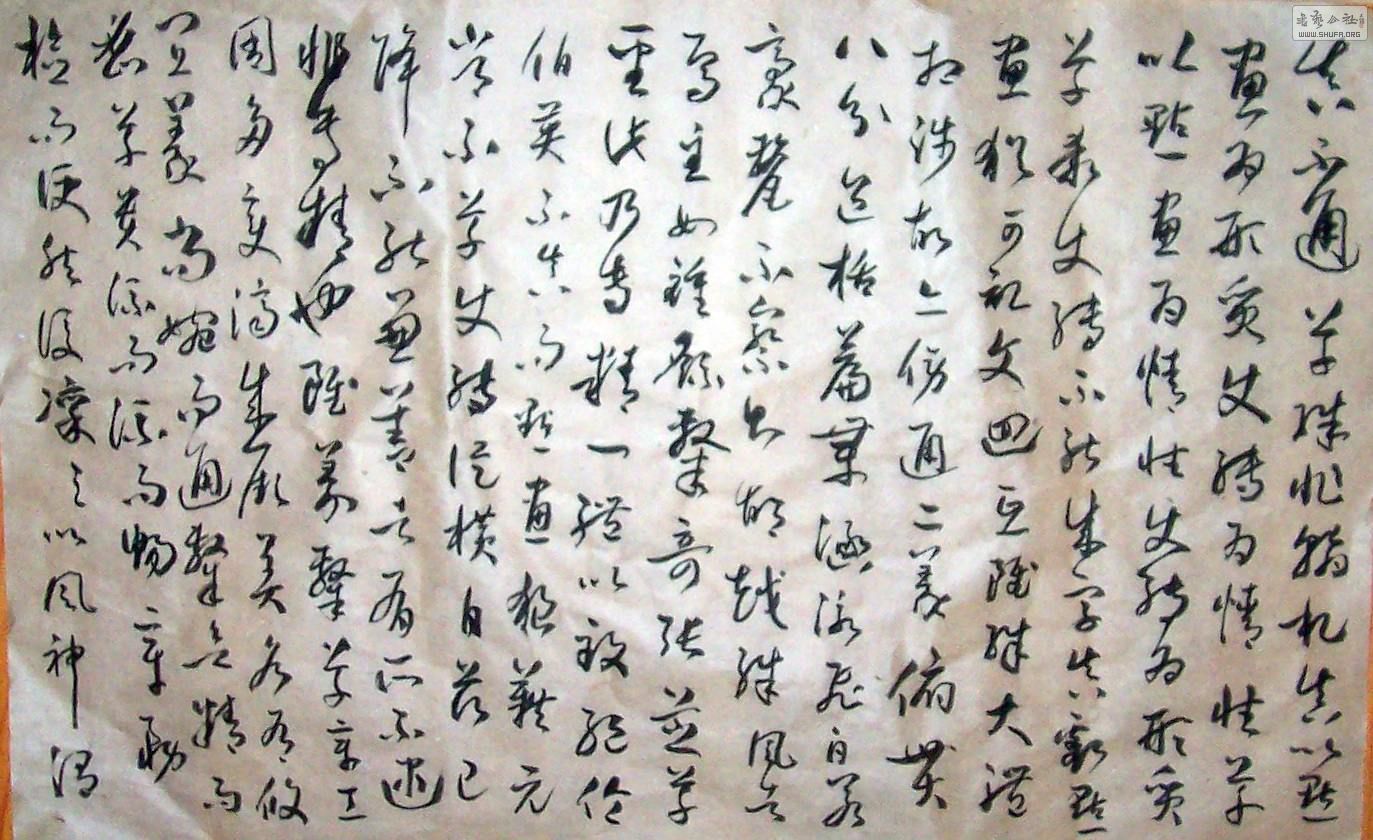 真不通草殊非翰札真以點
畫為形質使轉為情性草
以點畫為情性使轉為形質
草乖使轉不能成字真虧點
畫猶可記文迴互雖殊大體
相涉故亦傍通二篆俯貫
八分包括篇章涵泳飛白若
毫釐不察則胡越殊風者
焉至如鍾繇隸奇張芝草
聖此乃專精一體以致絕倫
伯英不真而點畫狼藉元
常不草使轉縱橫自茲已
降不能兼善者有所不逮
非專精也雖篆隸草章工
用多變濟成厥美各有攸
宜篆尚婉而通隸欲精而
密草貴流而流而暢章務
檢而便然後凜之以風神溫
書藝公社
WWW.SHUFA.ORG